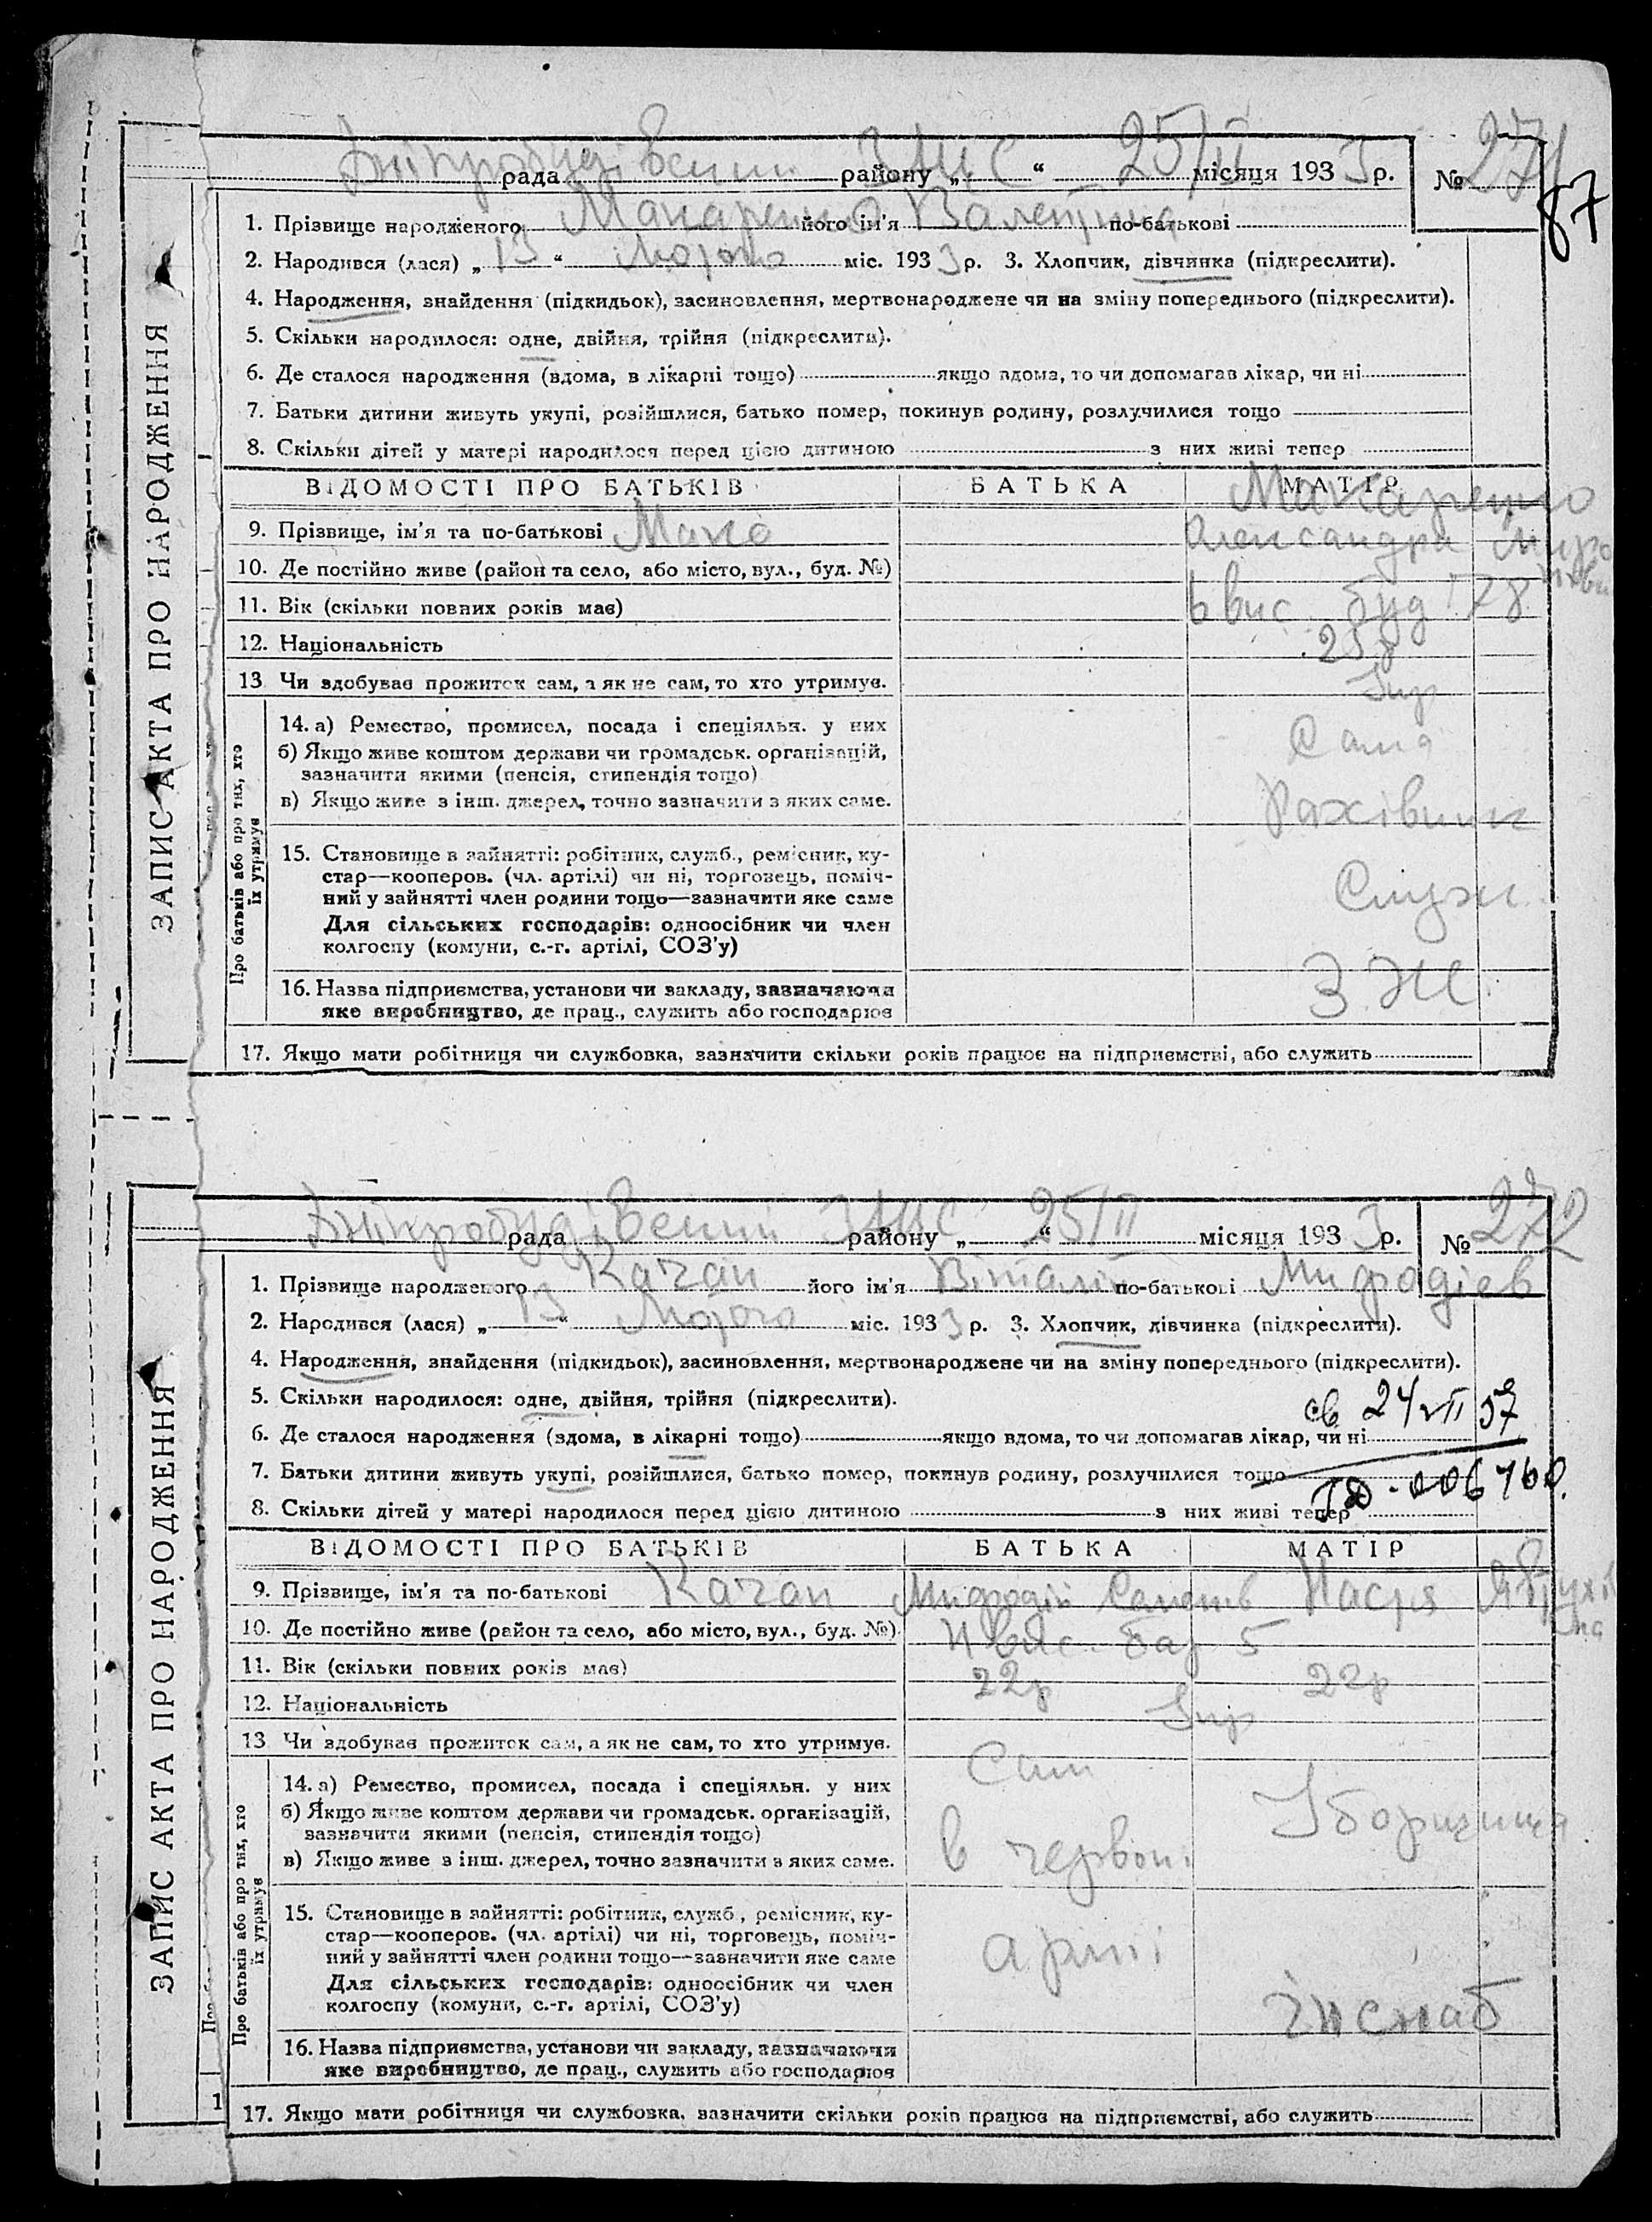 рада району „ “ 25/II місяця 1933 р. № 271
87
1. Прізвище народженого Макаренко його ім'я Валентина по-батькові
2. Народився (лася) „13“ Лютого міс. 1933 р. 3. Хлопчик, дівчинка (підкреслити).
4. Народження, знайдення (підкидьок), засиновлення, мертвонароджене чи на зміну попереднього (підкреслити).
5. Скільки народилося: одне, двійня, трійня (підкреслити).
6. Де сталося народження (вдома, в лікарні тощо) якщо вдома, то чи допомагав лікар, чи ні
7. Батьки дитини живуть укупі, розійшлися, батько помер, покинув родину, розлучилися тощо
8. Скільки дітей у матері народилося перед цією дитиною з них живі тепер
ВІДОМОСТІ ПРО БАТЬКІВ БАТЬКА МАТІР
9. Прізвище, ім'я та по-батькові Макаренко Александра
10. Де постійно живе (район та село, або місто, вул., буд. №) 6 вис. буд 78
11. Вік (скільки повних років має)
12. Національність Укр
13 Чи здобуває прожиток сам, а як не сам, то хто утримує. Сама
Про батьків або про тих, хто їх утримує
14. а) Ремество, промисел, посада і спеціяльн. у них
б) Якщо живе коштом держави чи громадськ. організацій,
зазначити якими (пенсія, стипендія тощо)
в) Якщо живе з інш. джерел, точно зазначити з яких саме. Рахівник
15. Становище в зайнятті: робітник, служб., ремісник, ку-
стар—кооперов. (чл. артілі) чи ні, торговець, поміч-
ний у зайнятті член родини тощо—зазначити яке саме Служ.
Для сільських господарів: одноосібник чи член
колгоспу (комуни, с.-г. артілі, СОЗ'у)
16. Назва підприємства, установи чи закладу, зазначаючи
яке виробництво, де прац., служить або господарює
17. Якщо мати робітниця чи службовка, зазначити скільки років працює на підприємстві, або служить
ЗАПИС АКТА ПРО НАРОДЖЕННЯ
рада району „ “ 25/II місяця 1933 р. № 272
1. Прізвище народженого Качан його ім'я Віталій по-батькові Мифодіев
2. Народився (лася) „13“ Лютого міс. 1933 р. 3. Хлопчик, дівчинка (підкреслити).
4. Народження, знайдення (підкидьок), засиновлення, мертвонароджене чи на зміну попереднього (підкреслити).
5. Скільки народилося: одне, двійня, трійня (підкреслити).
св 24 VII 57
6. Де сталося народження (вдома, в лікарні тощо) якщо вдома, то чи допомагав лікар, чи ні
7. Батьки дитини живуть укупі, розійшлися, батько помер, покинув родину, розлучилися тощо
8. Скільки дітей у матері народилося перед цією дитиною з них живі тепер
ВІДОМОСТІ ПРО БАТЬКІВ БАТЬКА МАТІР
9. Прізвище, ім'я та по-батькові Качан Мифодій Настя
10. Де постійно живе (район та село, або місто, вул., буд. №) вис. бар 5
11. Вік (скільки повних років має) 22р 22р
12. Національність Укр
13 Чи здобуває прожиток сам, а як не сам, то хто утримує. Сам
Про батьків або про тих, хто їх утримує
14. а) Ремество, промисел, посада і спеціяльн. у них
б) Якщо живе коштом держави чи громадськ. організацій,
зазначити якими (пенсія, стипендія тощо) Уборщиця
в) Якщо живе з інш. джерел, точно зазначити з яких саме. в червон.
15. Становище в зайнятті: робітник, служб., ремісник, ку-
стар—кооперов. (чл. артілі) чи ні, торговець, поміч-
ний у зайнятті член родини тощо—зазначити яке саме армії
Для сільських господарів: одноосібник чи член
колгоспу (комуни, с.-г. артілі, СОЗ'у)
16. Назва підприємства, установи чи закладу, зазначаючи
яке виробництво, де прац., служить або господарює
17. Якщо мати робітниця чи службовка, зазначити скільки років працює на підприємстві, або служить
ЗАПИС АКТА ПРО НАРОДЖЕННЯ